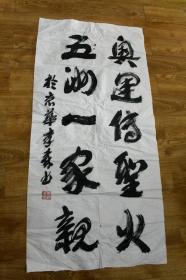 奥运傳聖火
五洲一家親
於京華李春